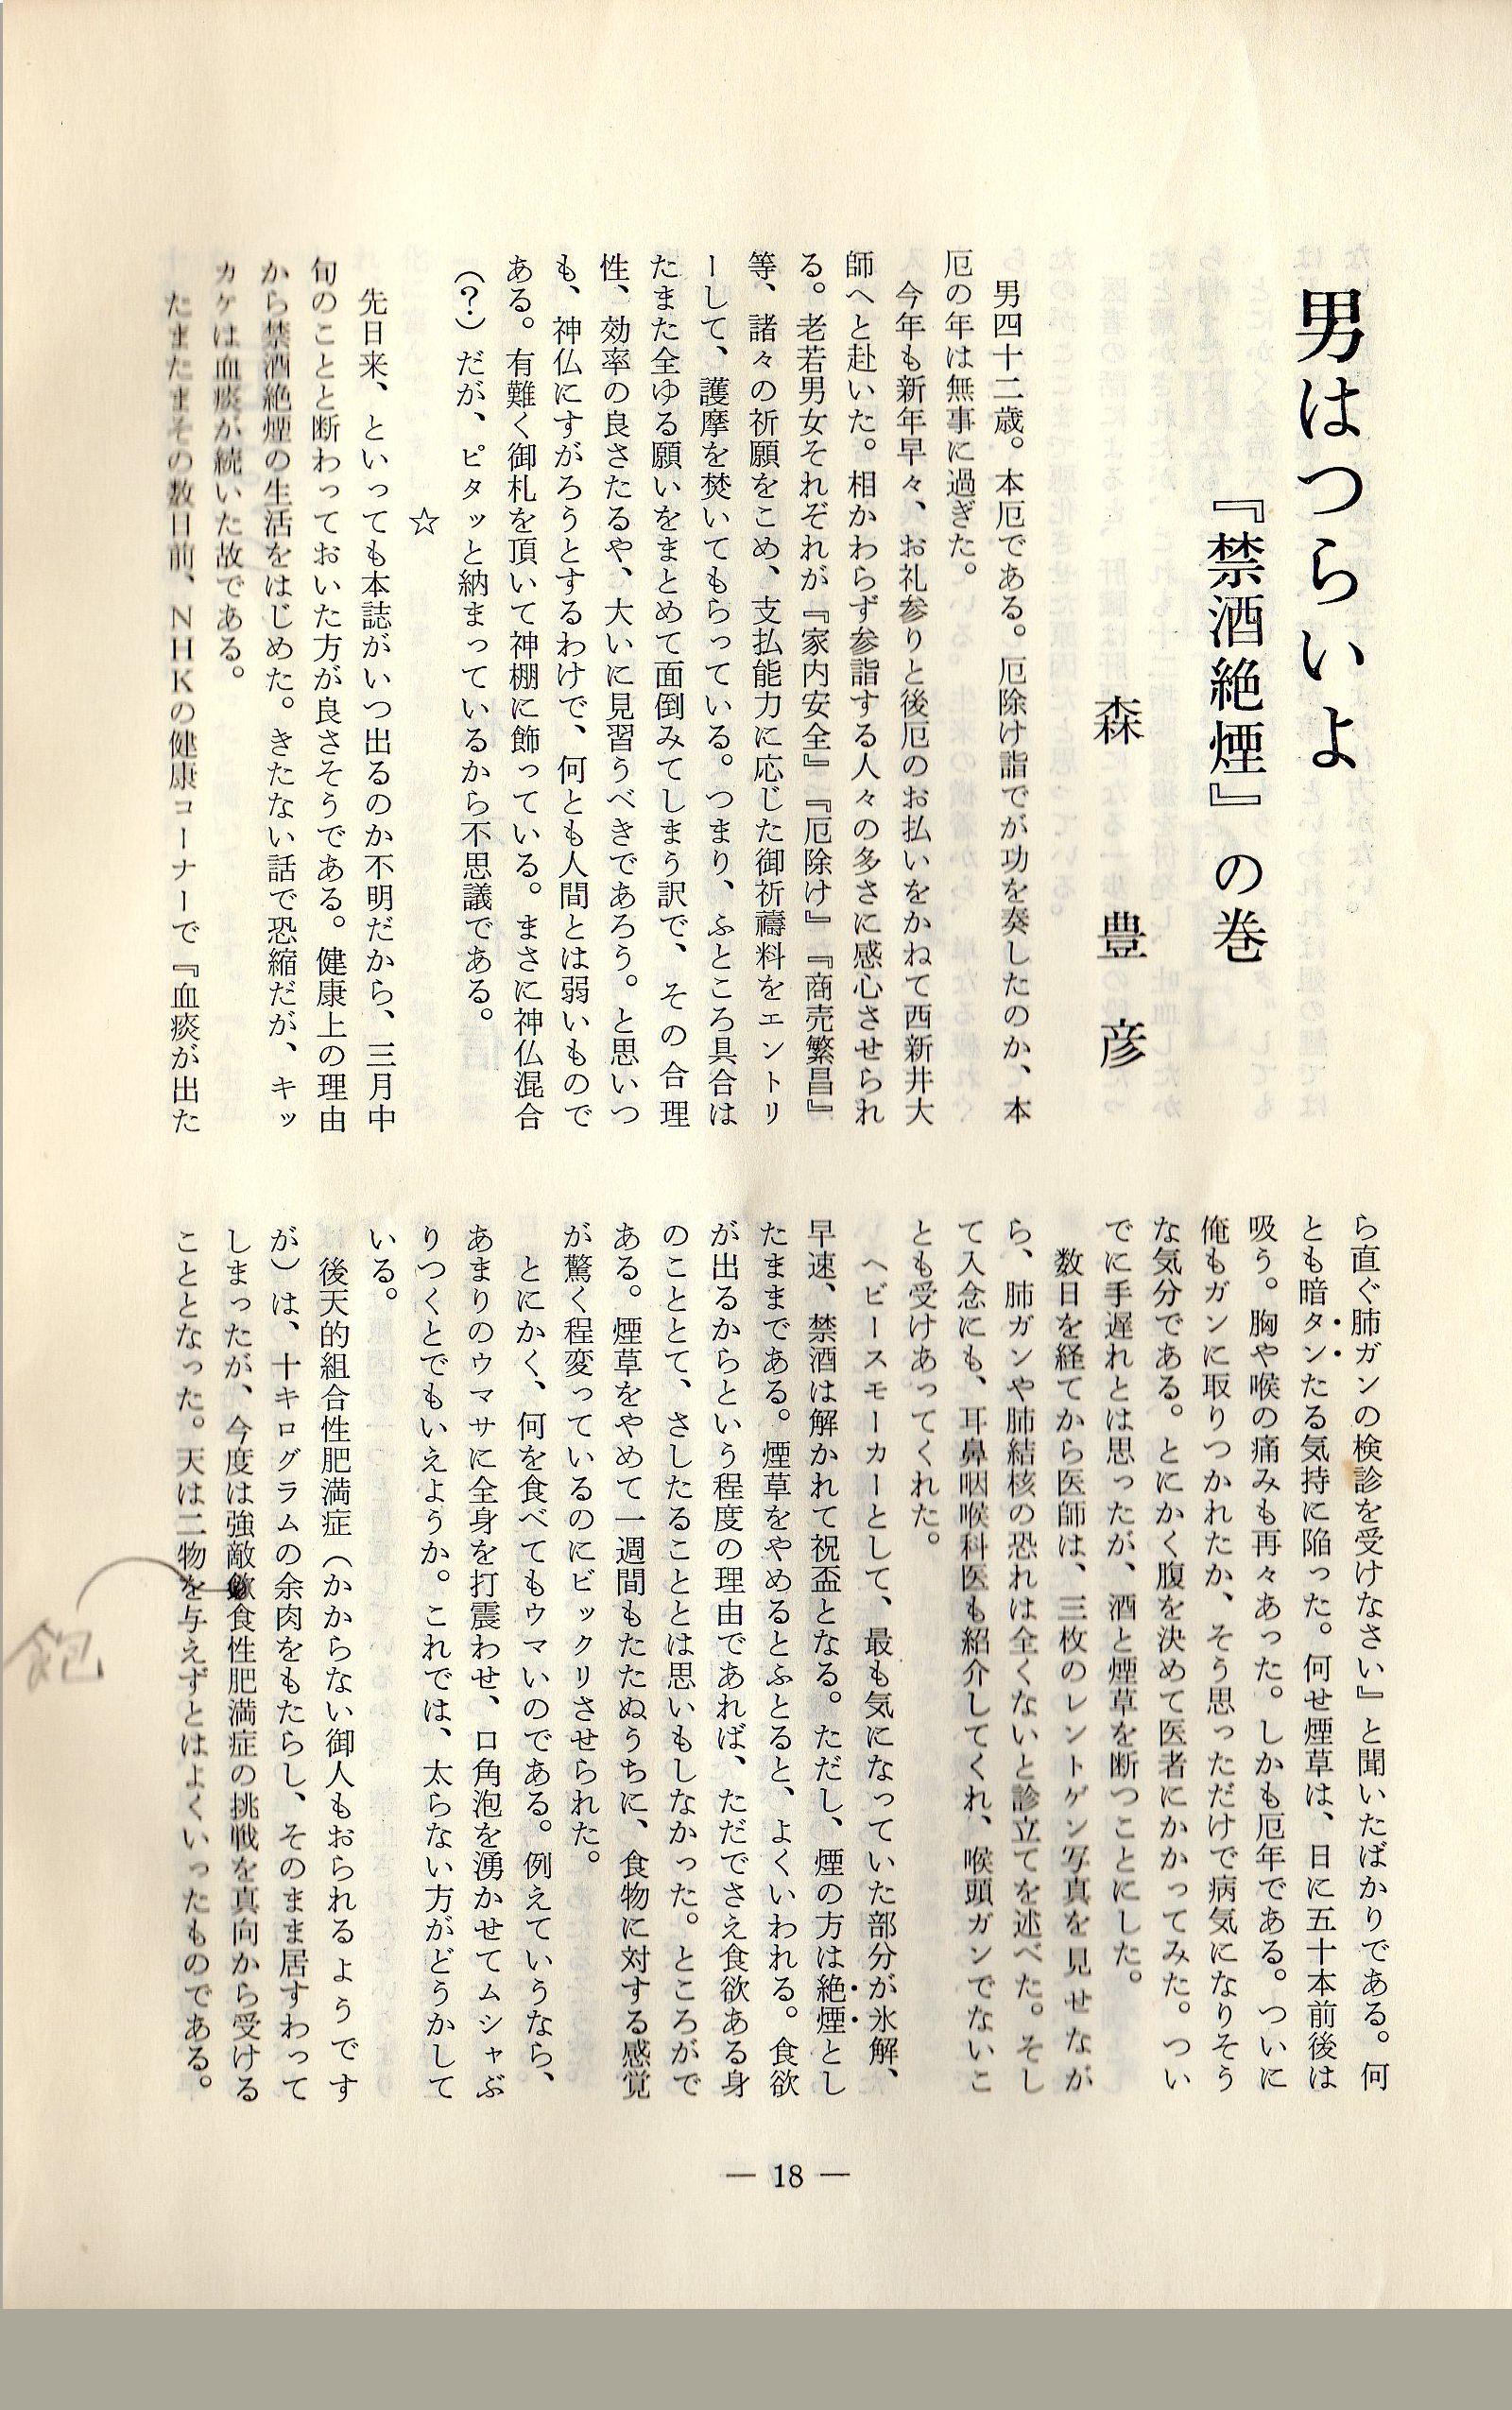 男はつらいよ
『禁酒絶煙』の巻
森　豊　彦
男四十二歳。本厄である。厄除け詣でが功を奏したのか、本
厄の年は無事に過ぎた。
今年も新年早々、お礼参りと後厄のお払いをかねて西新井大
師へと赴いた。相かわらず参詣する人々の多さに感心させられ
る。老若男女それぞれが『家内安全』『厄除け』『商売繁昌』
等、諸々の祈願をこめ、支払能力に応じた御祈禱料をエントリ
ーして、護摩を焚いてもらっている。つまり、ふところ具合は
たまた全ゆる願いをまとめて面倒みてしまう訳で、その合理
性、効率の良さたるや、大いに見習うべきであろう。と思いつ
も、神仏にすがろうとするわけで、何とも人間とは弱いもので
ある。有難く御札を頂いて神棚に飾っている。まさに神仏混合
（？）だが、ピタッと納まっているから不思議である。
☆
先日来、といっても本誌がいつ出るのか不明だから、三月中
旬のことと断わっておいた方が良さそうである。健康上の理由
から禁酒絶煙の生活をはじめた。きたない話で恐縮だが、キッ
カケは血痰が続いた故である。
たまたまその数日前、ＮＨＫの健康コーナーで『血痰が出た
ら直ぐ肺ガンの検診を受けなさい』と聞いたばかりである。何
とも暗タンたる気持に陥った。何せ煙草は、日に五十本前後は
吸う。胸や喉の痛みも再々あった。しかも厄年である。ついに
俺もガンに取りつかれたか、そう思っただけで病気になりそう
な気分である。とにかく腹を決めて医者にかかってみた。つい
でに手遅れとは思ったが、酒と煙草を断つことにした。
数日を経てから医師は、三枚のレントゲン写真を見せなが
ら、肺ガンや肺結核の恐れは全くないと診立てを述べた。そし
て入念にも、耳鼻咽喉科医も紹介してくれ、喉頭ガンでないこ
とも受けあってくれた。
ヘビースモーカーとして、最も気になっていた部分が氷解、
早速、禁酒は解かれて祝盃となる。ただし、煙の方は絶煙とし
たままである。煙草をやめるとふとると、よくいわれる。食欲
が出るからという程度の理由であれば、ただでさえ食欲ある身
のこととて、さしたることとは思いもしなかった。ところがで
ある。煙草をやめて一週間もたたぬうちに、食物に対する感覚
が驚く程変っているのにビックリさせられた。
とにかく、何を食べてもウマいのである。例えていうなら、
あまりのウマサに全身を打震わせ、口角泡を湧かせてムシャぶ
りつくとでもいえようか。これでは、太らない方がどうかして
いる。
後天的組合性肥満症（かからない御人もおられるようです
が）は、十キログラムの余肉をもたらし、そのまま居すわって
しまったが、今度は強敵食性肥満症の挑戦を真向から受ける
こととなった。天は二物を与えずとはよくいったものである。
飽
― 18 ―